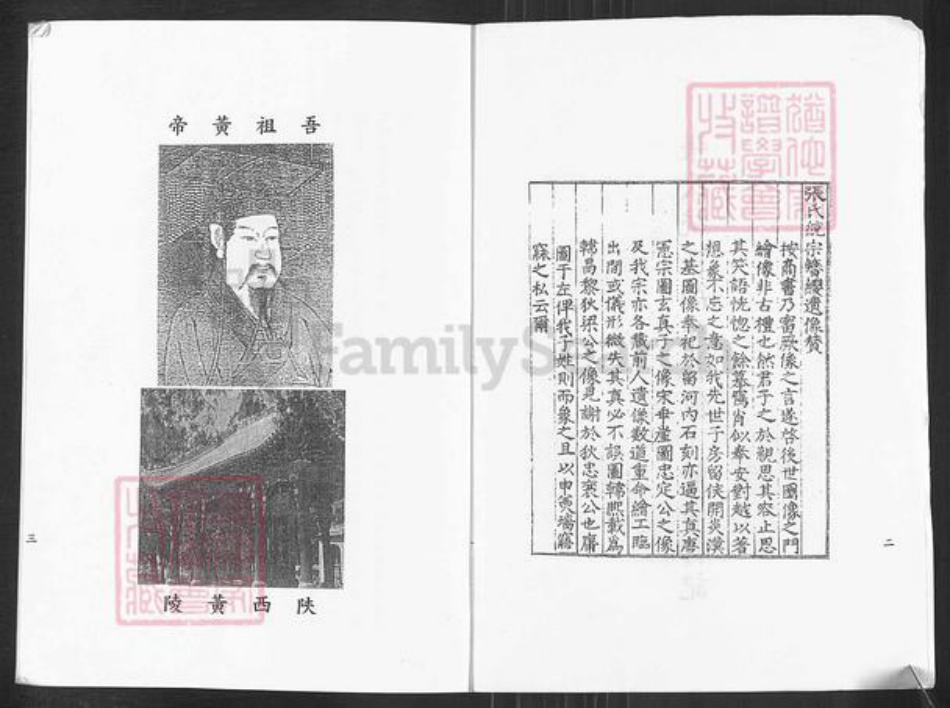 張氏統宗簪纓遺像贊
按商書乃審厥像之言遂啓後世圖像之門
繪像非古禮也然君子之於親思其容止思
其笑語恍惚之餘摹寫肖似奉安對越以著
想慕不忘之意如我先世子房留侯開炎漢
之基圖像奉祀於留河內石刻亦逼其真唐
憲宗圖玄真子之像宋垂崖圖忠定公之像
及我宗亦各藏前人遺像數道重命繪工臨
出間或儀形微失其真必不誤圖韓熙載爲
韓昌黎狄梁公之像見謝於狄忠襄公也廟
圖于左俾我子姓則而象之且以申羹墻寤
寐之私云爾
二
吾祖黃帝
陝西黃陵
三
FamilySearch